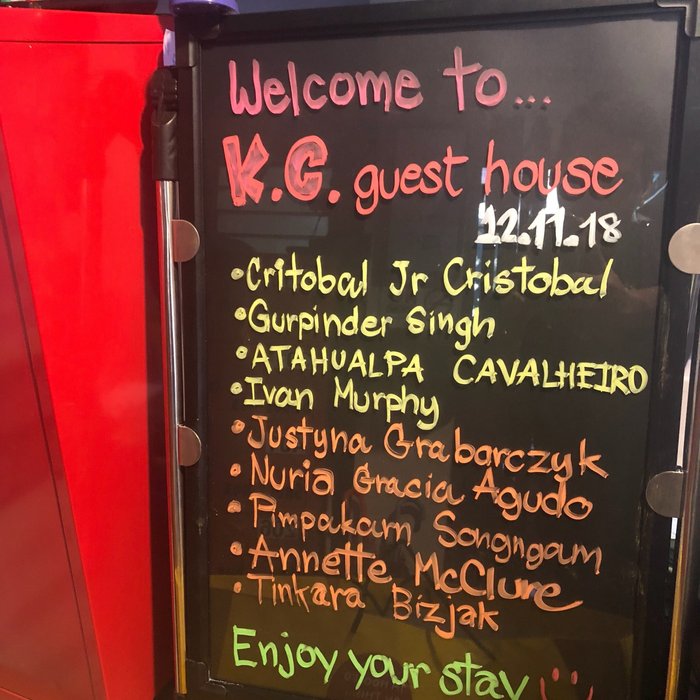 Welcome to...
K.C. guest house
12.11.18
•Critobal Jr Cristobal
•Gurpinder Singh
•ATAHUALPA CAVALHEIRO
•Ivan Murphy
•Justyna Grabarczyk
•Nuria Gracia Agudo
•Pimpakarn Songngam
•Annette McClure
•Tinkara Bizjak
Enjoy your stay